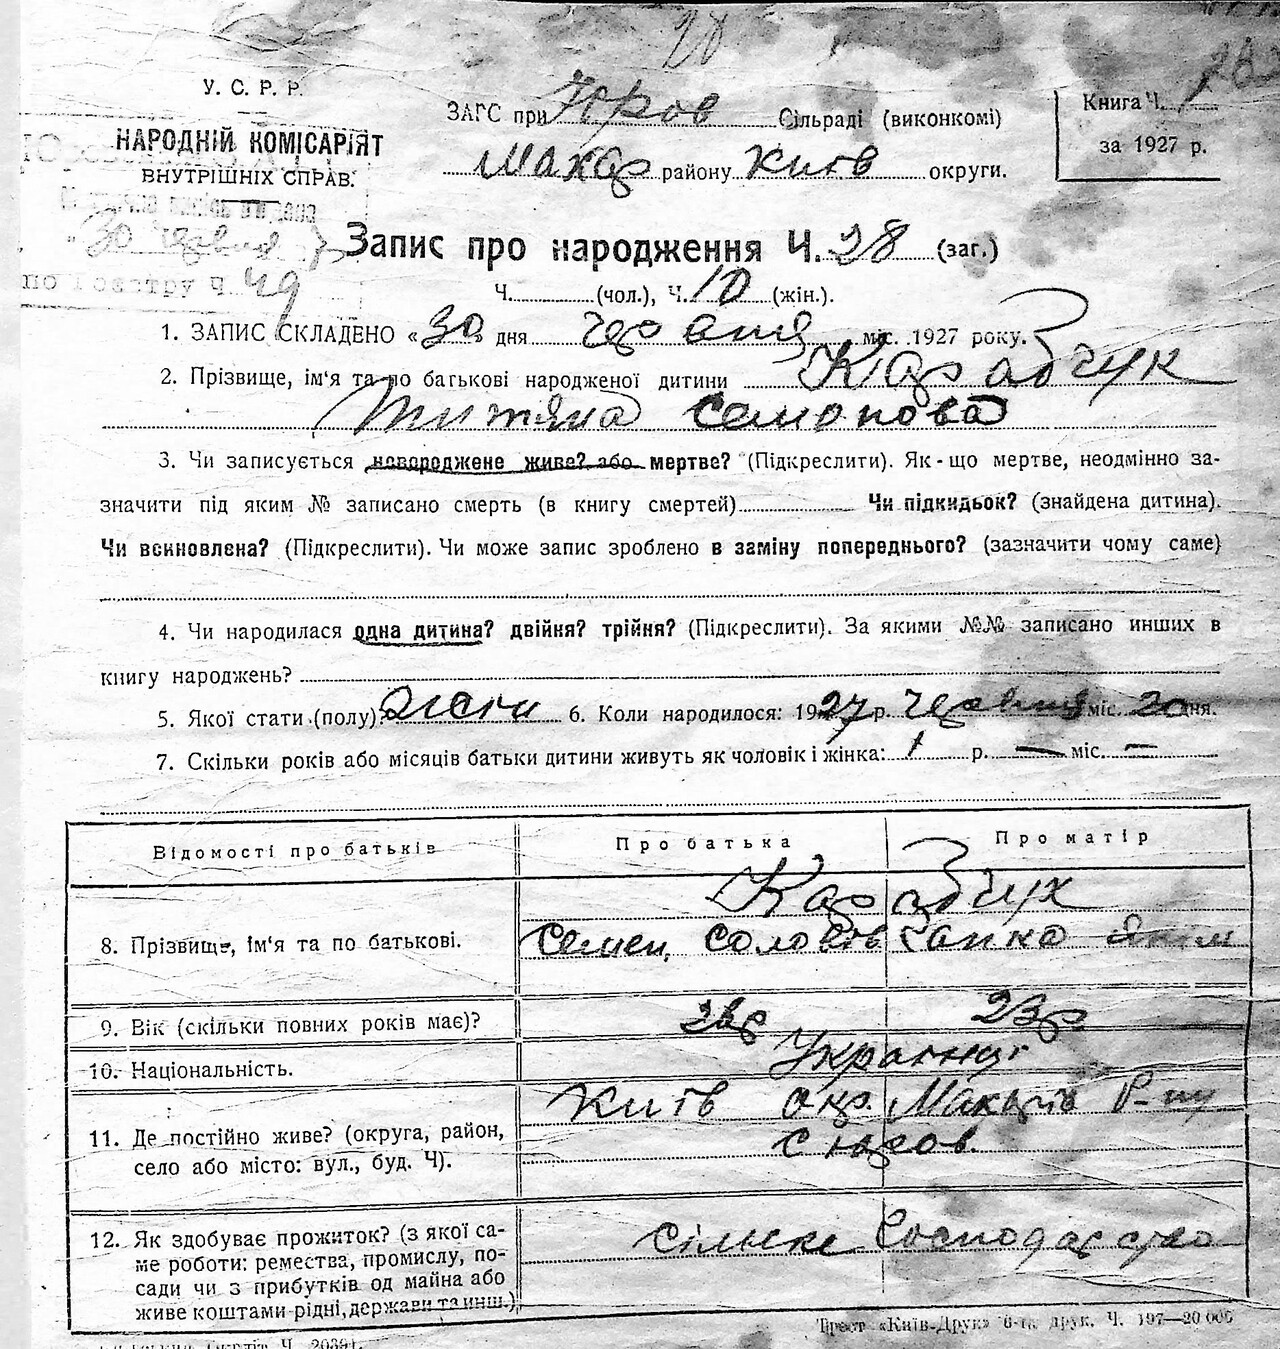 28
У. С. Р. Р.
НАРОДНІЙ КОМІСАРІЯТ
ВНУТРІШНІХ СПРАВ.
ЗАГС при Юров Сільраді (виконкомі)
Макар району Київ округи.
Книга Ч. 1
за 1927 р.
30 червня
по реєстру Ч. 49
Запис про народження Ч. 28 (заг.)
Ч. (чол.), Ч. 10 (жін.).
1. ЗАПИС СКЛАДЕНО «30» дня червня міс. 1927 року.
2. Прізвище, ім'я та по батькові народженої дитини Карабчук
Титяна Семенова
3. Чи записується новороджене живе? або мертве? (Підкреслити). Як-що мертве, неодмінно за-
значити під яким № записано смерть (в книгу смертей) Чи підкидьок? (знайдена дитина).
Чи всиновлена? (Підкреслити). Чи може запис зроблено в заміну попереднього? (зазначити чому саме)
4. Чи народилася одна дитина? двійня? трійня? (Підкреслити). За якими №№ записано инших в
книгу народжень?
5. Якої стати (полу)? 6. Коли народилося: 1927 р. червня міс. 20 дня.
7. Скільки років або місяців батьки дитини живуть як чоловік і жінка: 1 р. — міс. —
Відомості про батьків Про батька Про матір
Карабчук
8. Прізвище, ім'я та по батькові. Семен, Яким
9. Вік (скільки повних років має)? 23р
10. Національність. Українці
Київ окр. Макарів р-ну
11. Де постійно живе? (округа, район,
село або місто: вул., буд. Ч). с Юров.
12. Як здобуває прожиток? (з якої са-
ме роботи: ремества, промислу, по-
сади чи з прибутків од майна або
живе коштами рідні, держави та инш.) сільске господарство
Трест «Київ-Друк» 6-та друк. Ч. 197—20 000